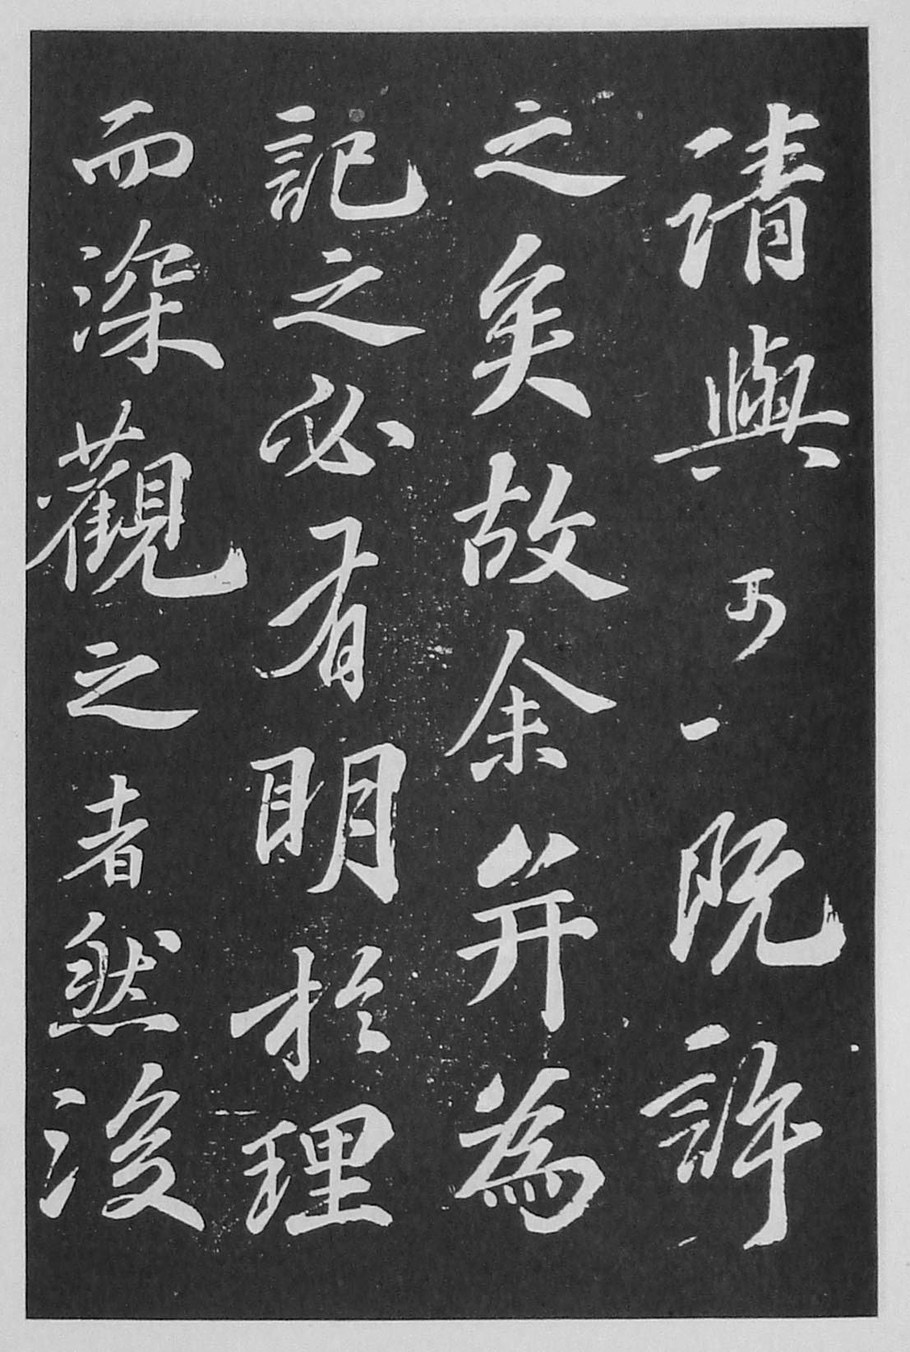 請與可一既許
之矣故余并為
記之必有明於理
而深觀之者然後